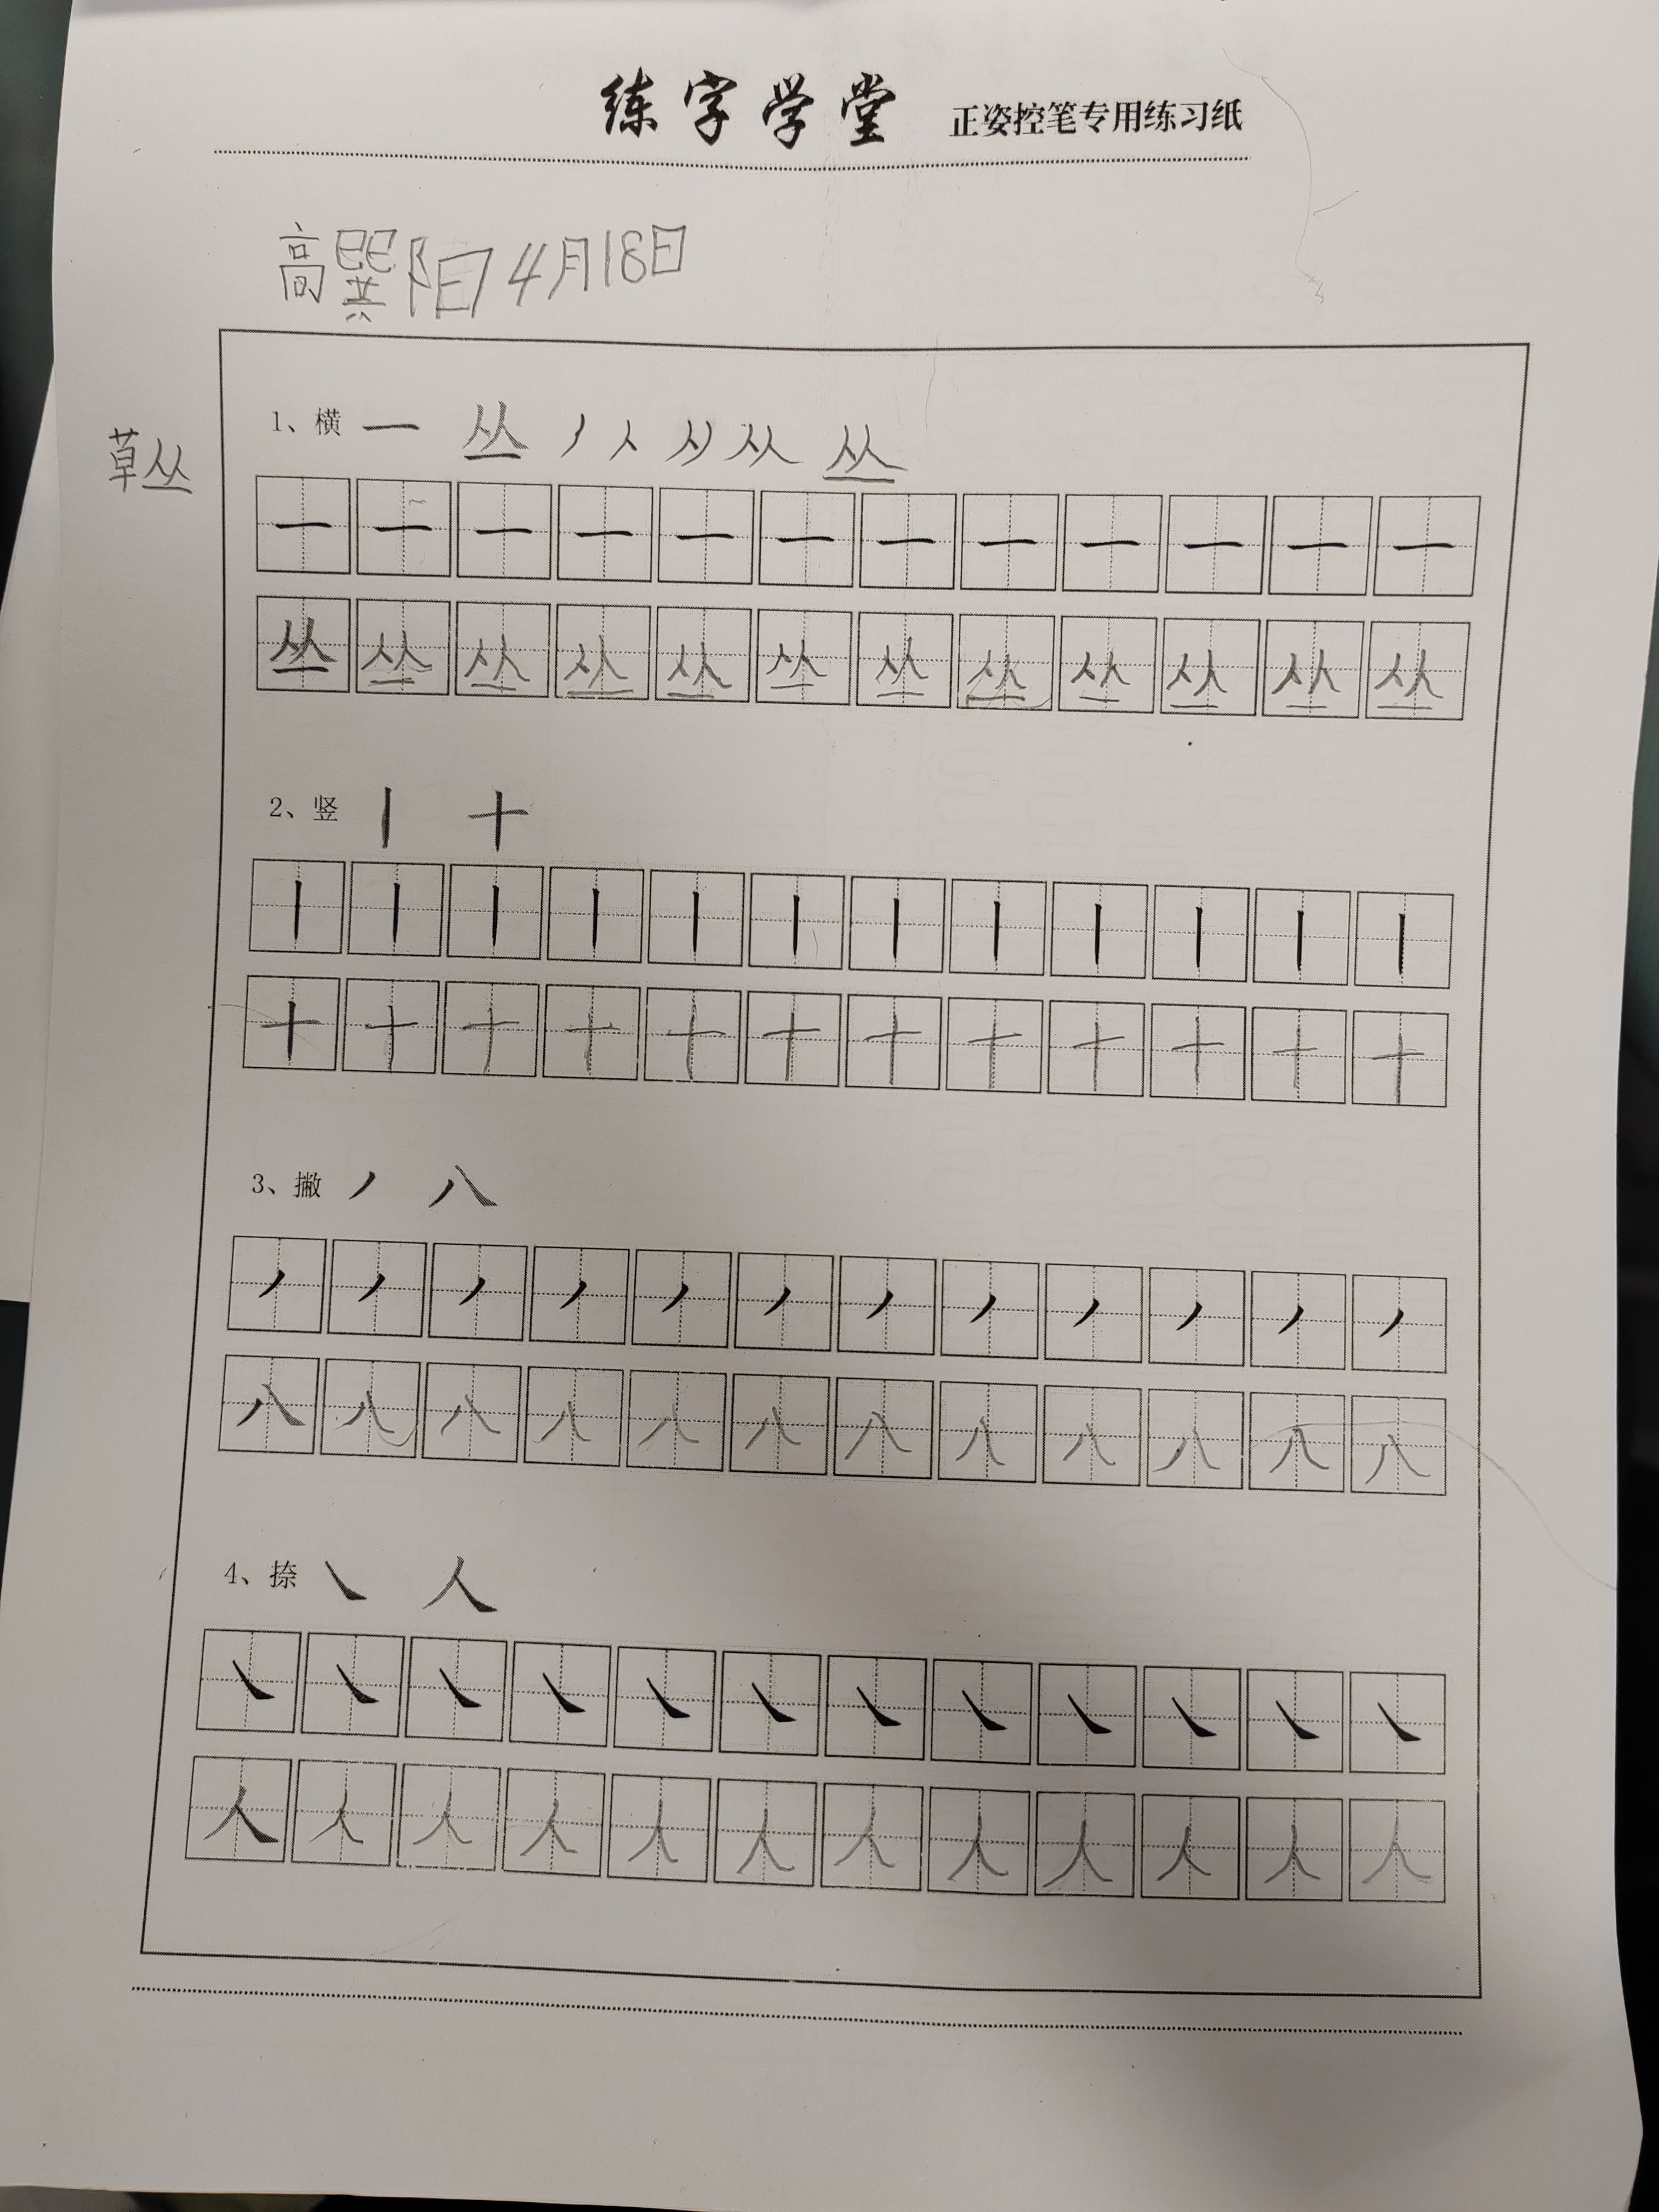 练字学堂 正姿控笔专用练习纸
高巽阳4月18日
1、横 一 丛 丿 人 丛
草丛
一 一 一 一 一 一 一 一 一 一 一 一
丛 丛 丛 丛 丛 丛 丛 丛 丛 丛 丛 丛
2、竖 丨 十
丨 丨 丨 丨 丨 丨 丨 丨 丨 丨 丨 丨
十 十 十 十 十 十 十 十 十 十 十 十
3、撇 丿 八
丿 丿 丿 丿 丿 丿 丿 丿 丿 丿 丿 丿
八 八 八 八 八 八 八 八 八 八 八 八
4、捺 ㇏ 人
㇏ ㇏ ㇏ ㇏ ㇏ ㇏ ㇏ ㇏ ㇏ ㇏ ㇏ ㇏
人 人 人 人 人 人 人 人 人 人 人 人